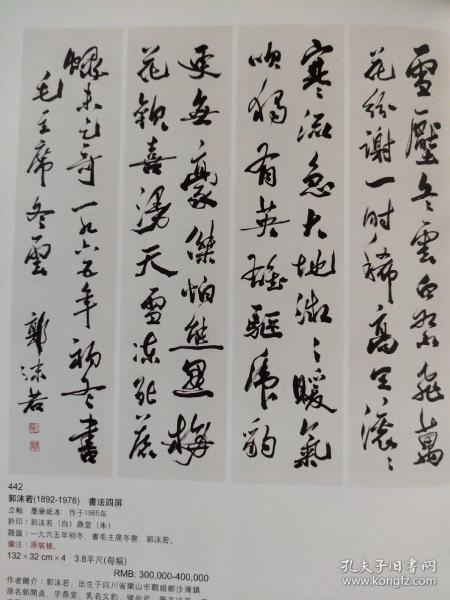 雪壓冬雲白絮飛萬
花紛謝一時稀高天滾〻
寒流急大地微〻暖氣
吹獨有英雄驅虎豹
更無豪傑怕熊羆梅
花歡喜漫天雪凍死蒼
蠅未足奇 一九六五年初冬書
毛主席冬雲 郭沫若
442
郭沫若(1892-1978) 書法四屏
立軸 墨筆紙本 作于1965年
鈐印:郭沫若(白)鼎堂(朱)
題識:一九六五年初冬,書毛主席冬雲,郭沫若。
備注:原裝裱。
132×32 cm×4 3.8平尺(每幅)
RMB: 300,000-400,000
作者簡介:郭沫若,出生于四川省樂山市觀娥鄉沙灣鎮,
原名郭開貞,字鼎堂,乳名文豹,號尚武,
孔夫子旧书网